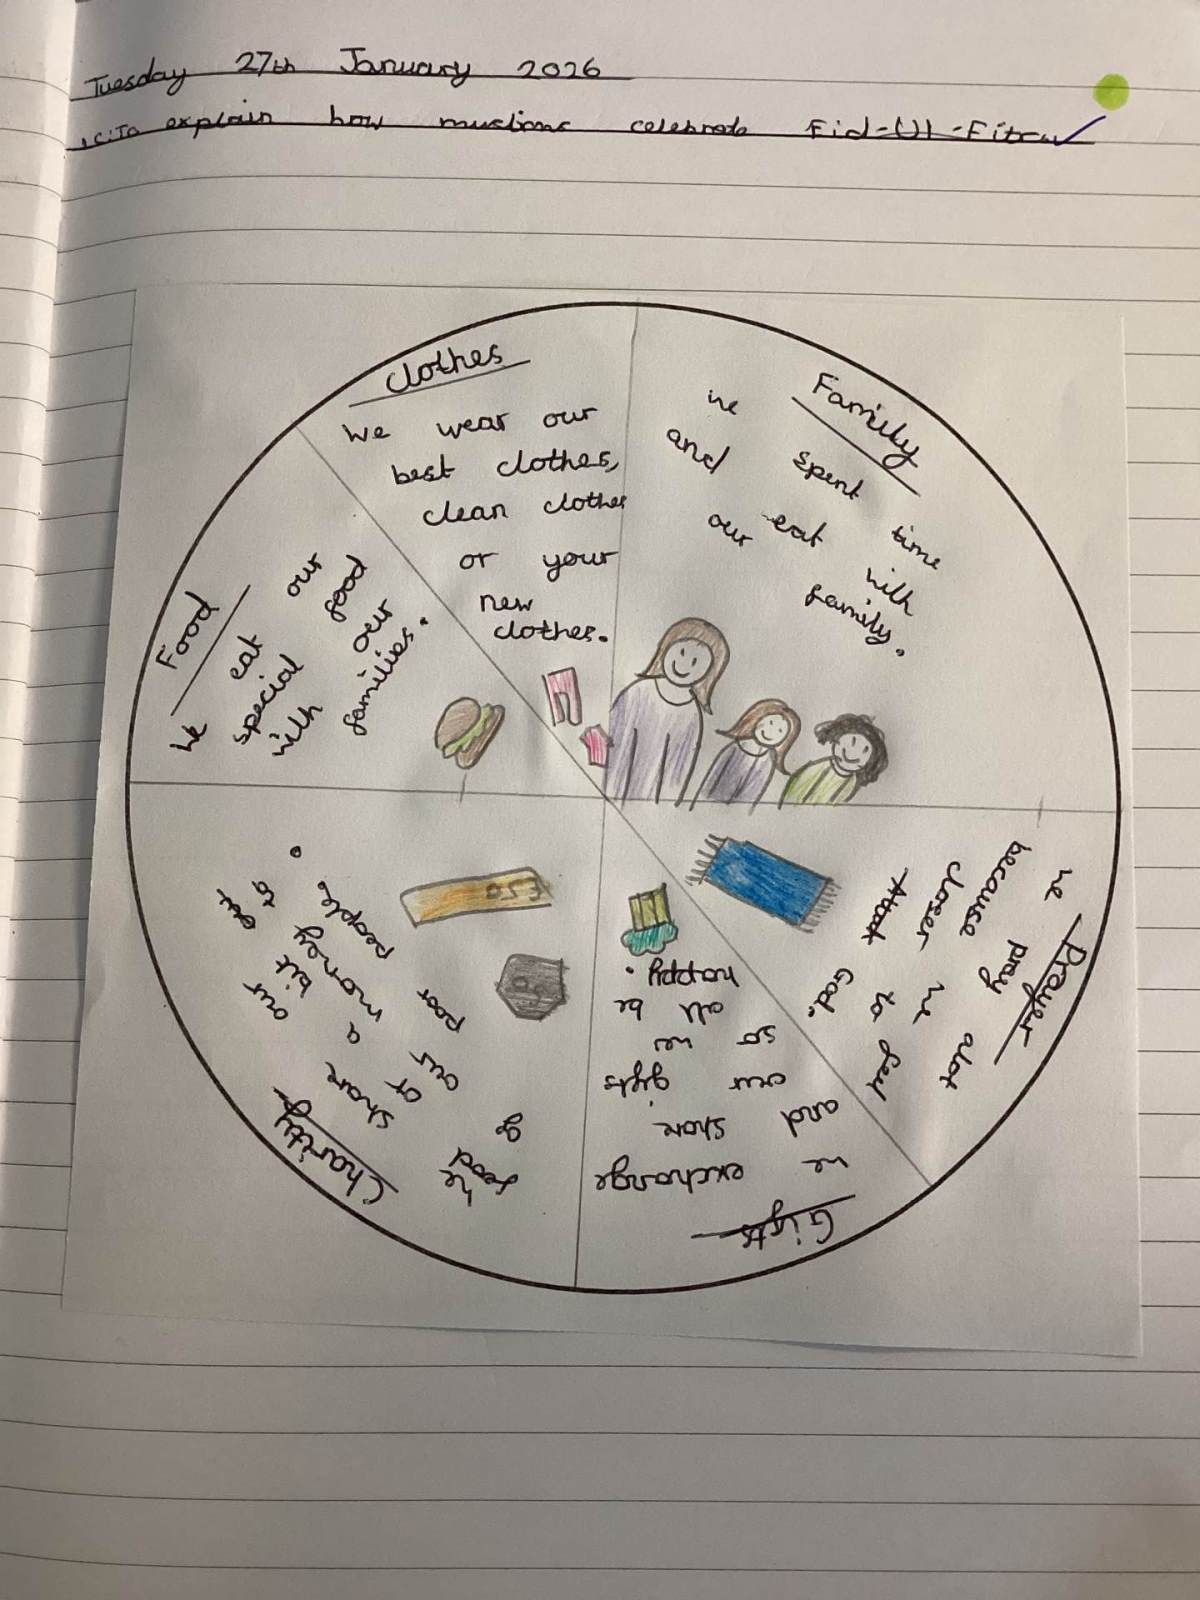 Tuesday 27th January 2026
LC:To explain how muslims celebrate Eid-Ul-Fitr
Clothes
We wear our
best clothes,
clean clothes
or your
new
clothes.
Family
we spent time
and eat with
our family.
Prayer
we pray alot
because we feel
closer to
God.
Gifts
we exchange
and share
our gifts
so we
all be
happy.
Charity
we share our
bit of
money to
our poor
people.
Food
We eat our
special food
with our
families.
£50